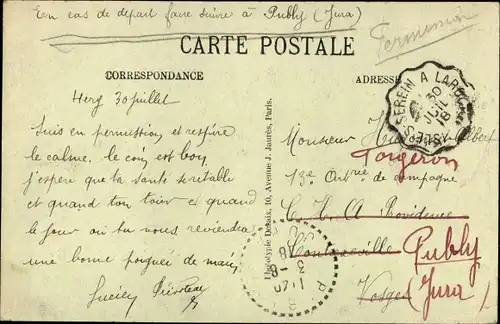 En cas de départ faire suivre à Publy (Jura)
CARTE POSTALE
Permission
CORRESPONDANCE
ADRESSE
Hery 30 juillet
Suis en permission et respire
le calme. le coin est bon,
j'espère que ta santé se rétabli
et quand ton tour et quand
le jour où tu nous reviendras
une bonne poignée de main
Lucien
Héliotypie Desaix, 10, Avenue J. Jaurès, Paris.
SEREIN A LAROCHE
30
JUIL
18
Monsieur
Forgeron
13e Ortrie de campagne
C. H. A Providence
Contrexeville Publy
Vosges (Jura)